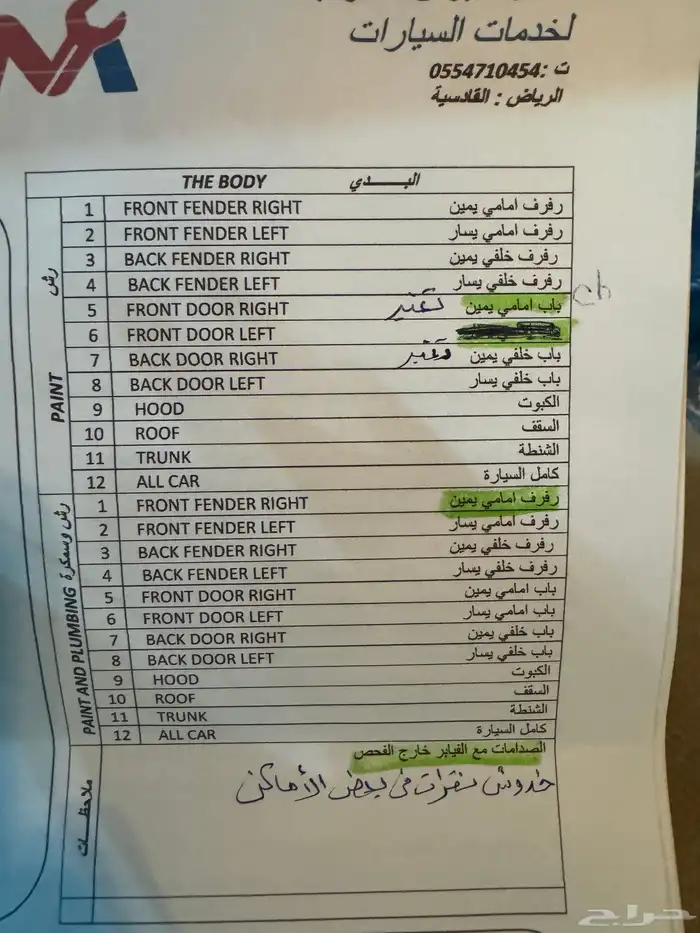 لخدمات السيارات
ت :0554710454
الرياض : القادسية
THE BODY البـــــدي
رش PAINT
1 FRONT FENDER RIGHT رفرف امامي يمين
2 FRONT FENDER LEFT رفرف امامي يسار
3 BACK FENDER RIGHT رفرف خلفي يمين
4 BACK FENDER LEFT رفرف خلفي يسار
5 FRONT DOOR RIGHT تغيير باب امامي يمين Ch
6 FRONT DOOR LEFT
7 BACK DOOR RIGHT تغيير باب خلفي يمين
8 BACK DOOR LEFT باب خلفي يسار
9 HOOD الكبوت
10 ROOF السقف
11 TRUNK الشنطة
12 ALL CAR كامل السيارة
رش وسمكرة PAINT AND PLUMBING
1 FRONT FENDER RIGHT رفرف امامي يمين
2 FRONT FENDER LEFT رفرف امامي يسار
3 BACK FENDER RIGHT رفرف خلفي يمين
4 BACK FENDER LEFT رفرف خلفي يسار
5 FRONT DOOR RIGHT باب امامي يمين
6 FRONT DOOR LEFT باب امامي يسار
7 BACK DOOR RIGHT باب خلفي يمين
8 BACK DOOR LEFT باب خلفي يسار
9 HOOD الكبوت
10 ROOF السقف
11 TRUNK الشنطة
12 ALL CAR كامل السيارة
ملاحظـــات
الصدامات مع الفيابر خارج الفحص
خدوش نقرات في بعض الأماكن
حراج